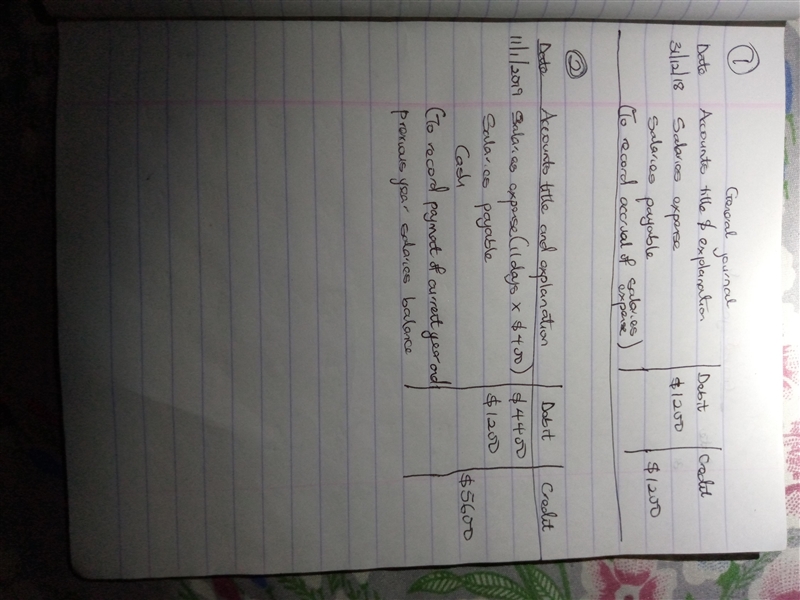 General journal
1
Date Accounts title & explanation Debit Credit
31/12/18 Salaries expense $1200
Salaries payable $1200
(To record accrual of salaries
expense)
2
Date Accounts title and explanation Debit Credit
11/1/2019 Salaries expense (11 days x $400) $4400
Salaries payable $1200
Cash $5600
(To record payment of current year and
previous year salaries balance